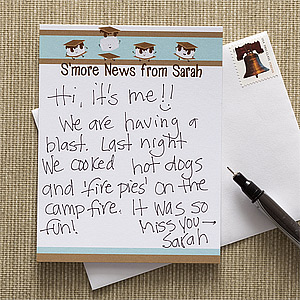 S'more News from Sarah
Hi, it's me!!
We are having a
blast. Last night
we cooked hot dogs
and 'fire pies' on the
campfire. It was so
fun! Miss you→
Sarah